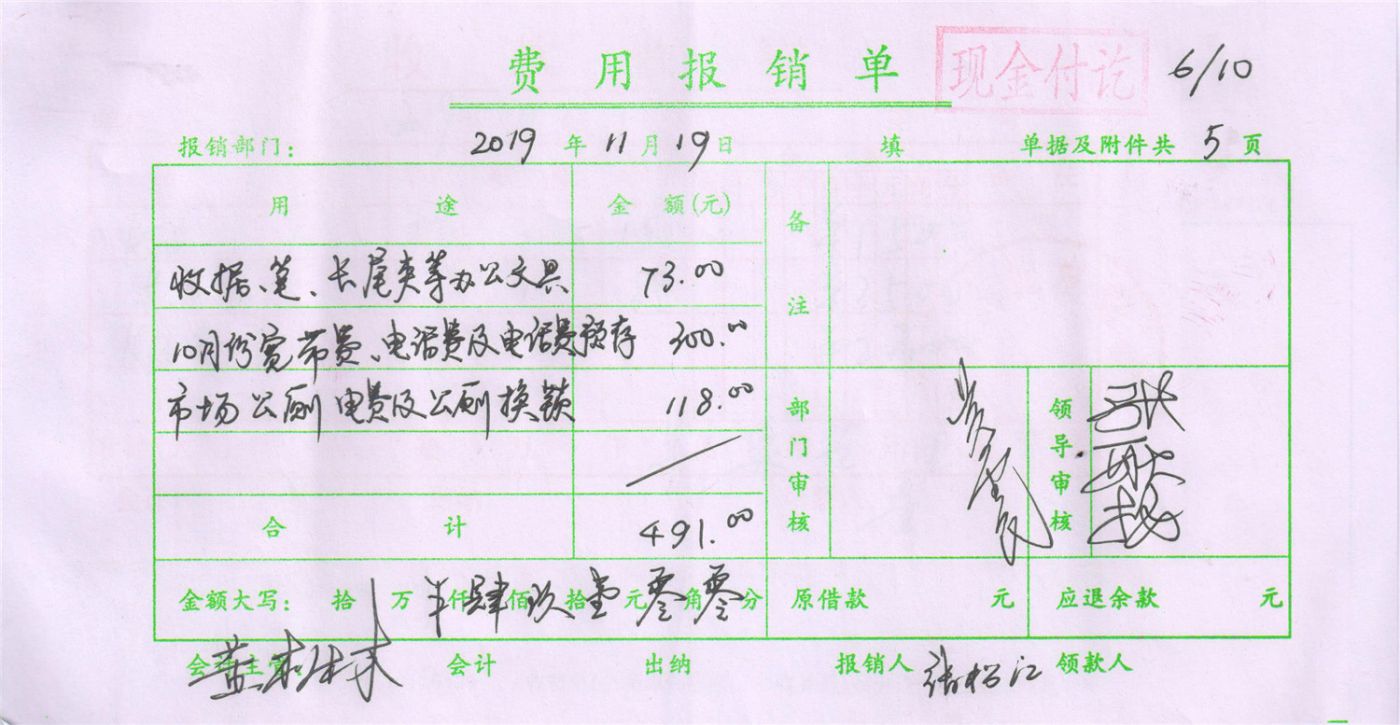 费用报销单 现金付讫 6/10
报销部门: 2019年11月19日 填 单据及附件共5页
用途 金额(元) 备注
收据、笔、长尾夹等办公文具 73.00
10月份宽带费、电话费及电话费预存 300.00
市场公厕电费及公厕换锁 118.00
部门审核 领导审核
合计 491.00
金额大写: 拾万仟肆佰玖拾壹元零角零分 原借款 元 应退余款 元
会计主管 会计 出纳 报销人 张松江 领款人